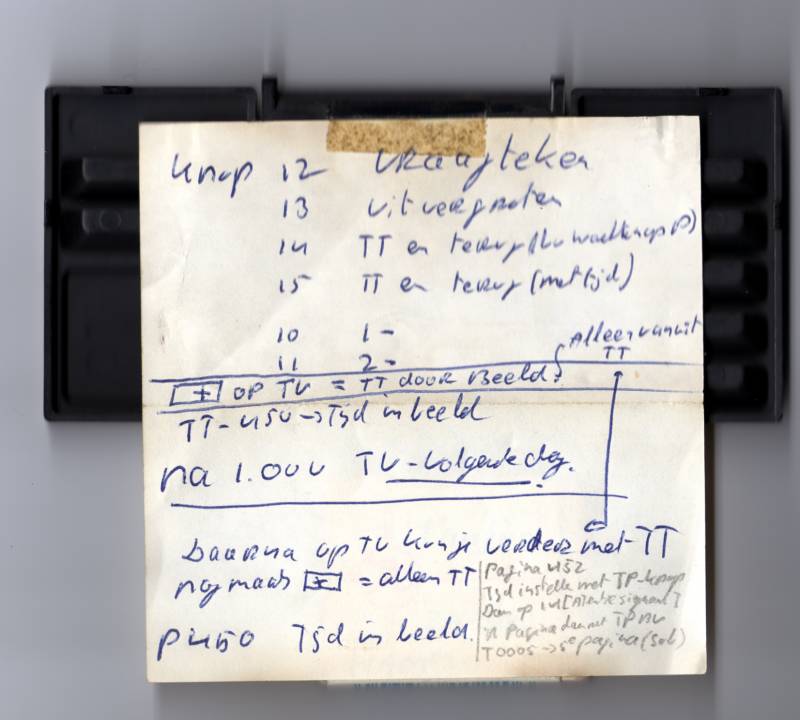 Knop 12 vraagteken
13 uitvergroten
14 TT en terug (tv wachtknop P)
15 TT en terug (met tijd)
10 1-
11 2-
Alleen vanuit
TT
[+] op TV = TT door Beeld
TT-450 → Tijd in beeld
na 1.00u TV-volgende dag.
Daarna op TV kun je verder met TT
nogmaals [+] = alleen TT
P450 Tijd in beeld.
Pagina 452
Tijd instellen met TP-knop
Dan op 14
Pagina dan met TP
T0005 → 5e pagina (sub)